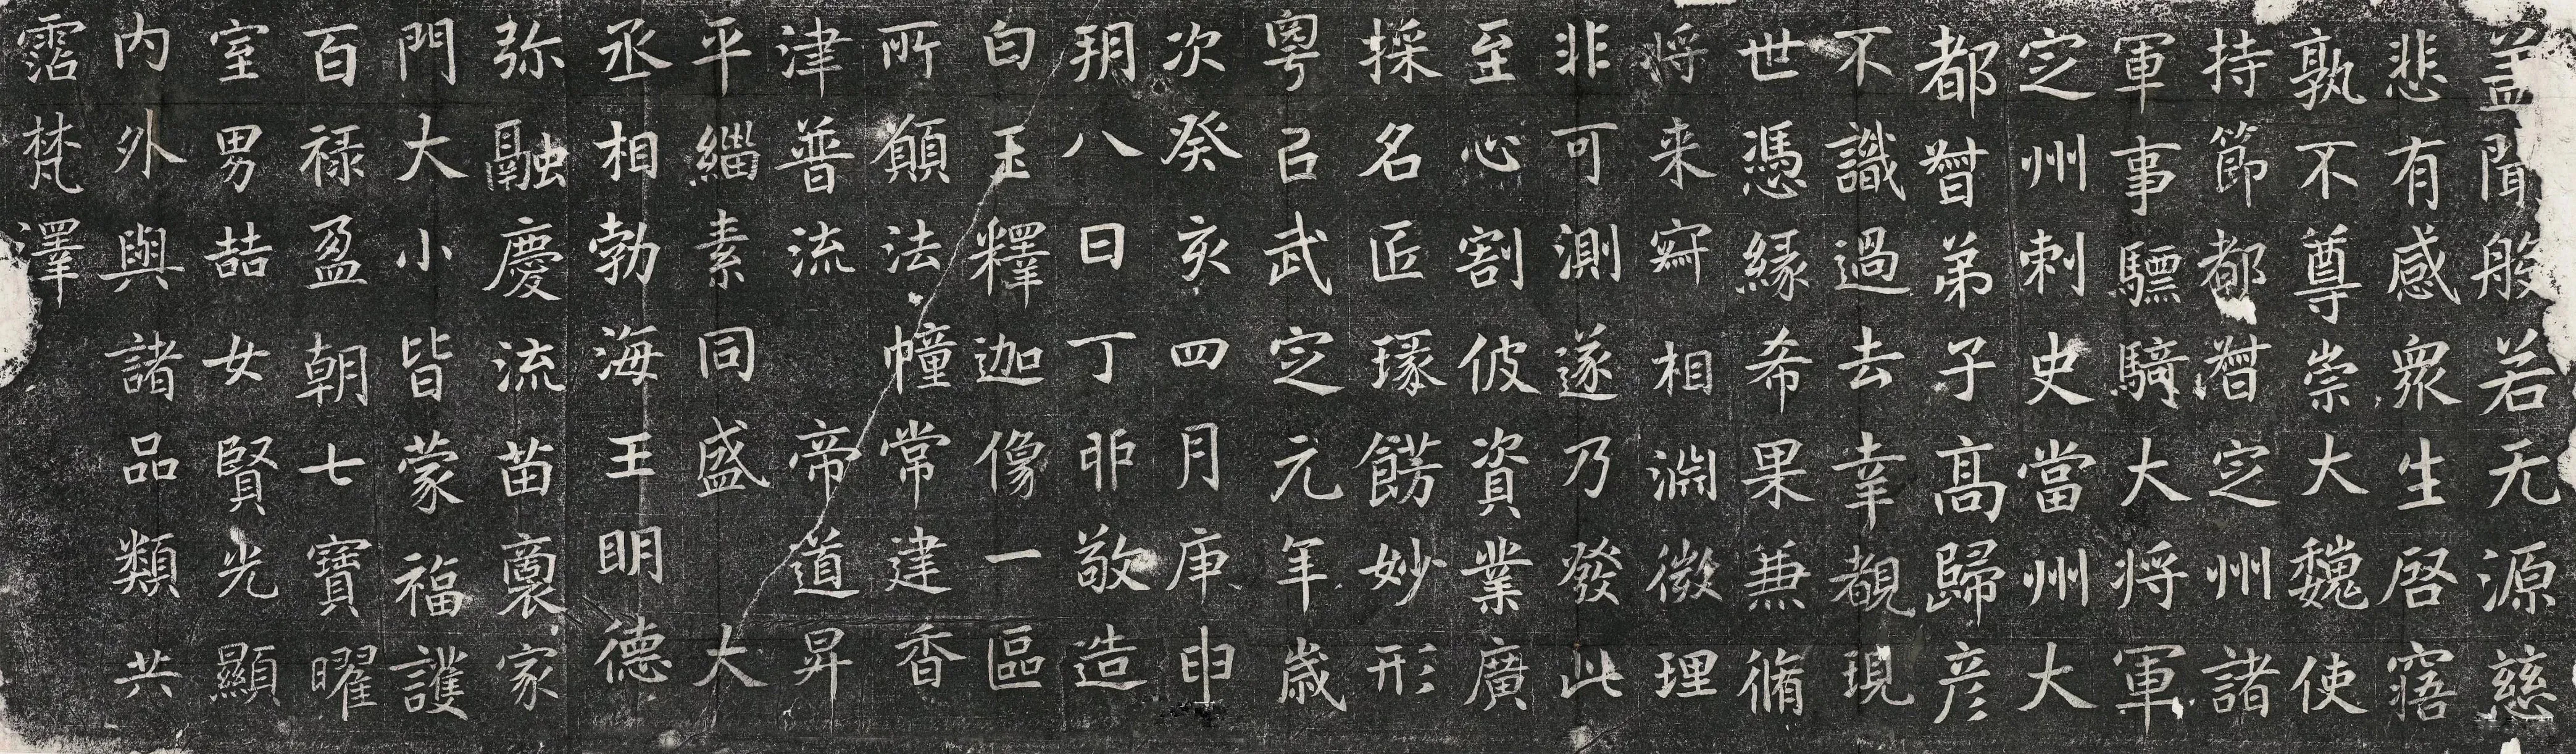 盖聞般若无源慈
悲有感衆生啓寤
孰不尊崇大魏使
持節都督定州諸
軍事驃騎大将軍
定州刺史當州大
都督弟子高歸彦
不識過去幸覩現
世憑緣希果兼脩
将来冥相淵微理
非可測遂乃發此
至心割彼資業廣
採名匠瑑餝妙形
粤以武定元年歲
次癸亥四月庚申
朔八日丁卯敬造
白玉釋迦像一區
所願法幢常建香
津普流 帝道昇
平緇素同盛 大
丞相勃海王明德
弥融慶流苗裔家
門大小皆蒙福護
百禄盈朝七寶曜
室男喆女賢光顯
内外與諸品類共
霑梵澤